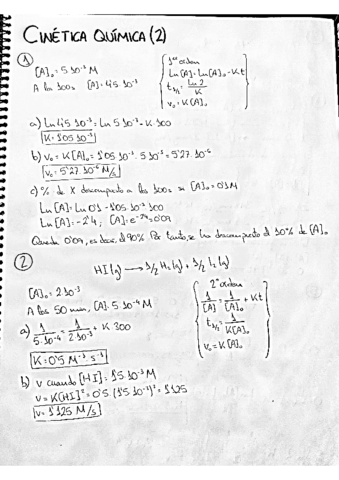 CINÉTICA QUÍMICA (2)
①
[A]₀ = 5·10⁻³ M
A los 100s [A] = 4'5·10⁻³
1er orden
Ln[A] = Ln[A]₀ - Kt
t₁/₂ = Ln 2 / K
v₀ = K[A]₀
a) Ln 4'5·10⁻³ = Ln 5·10⁻³ - K·100
K = 1'05·10⁻³
b) v₀ = K[A]₀ = 1'05·10⁻³ · 5·10⁻³ = 5'27·10⁻⁶
v₀ = 5'27·10⁻⁶ M/s
c) % de X descompuesto a los 100s si [A]₀ = 0'1M
Ln[A] = Ln 0'1 - 1'05·10⁻³·100
Ln[A] = -2'4; [A] = e⁻²'⁴ = 0'09
Queda 0'09, es decir, el 90%. Por tanto, se ha descompuesto el 10% de [A]₀
②
HI(g) → 1/2 H₂(g) + 1/2 I₂(g)
[A]₀ = 2·10⁻³
A los 50 min, [A] = 5·10⁻⁴ M
2º orden
1/[A] = 1/[A]₀ + Kt
t₁/₂ = 1/K[A]₀
v₀ = K[A]₀
a) 1/5·10⁻⁴ = 1/2·10⁻³ + K·300
K = 0'5 M⁻¹·s⁻¹
b) v cuando [HI] = 1'5·10⁻³ M
v = K[HI]² = 0'5·(1'5·10⁻³)² = 1'125
v = 1'125 M/s